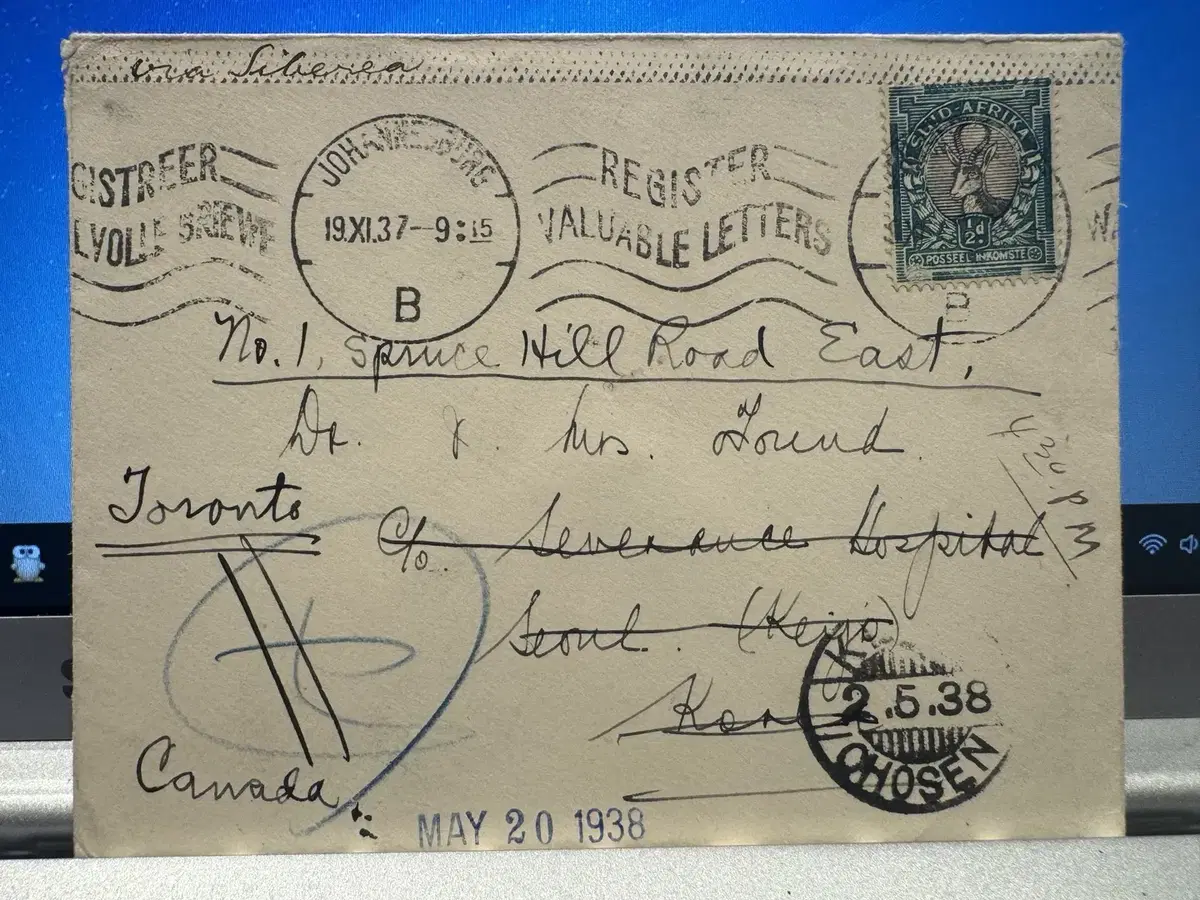 via Siberea
GISTREER
LVOLLE BRIEWE
JOHANNESBURG
19.XI.37--9:15
B
REGISTER
VALUABLE LETTERS
SUID-AFRIKA
½d
POSSEEL-INKOMSTE
B
WA
No. 1, Spruce Hill Road East,
Dr. & Mrs. Found.
4 30 P M
Toronto
c/o. Severance Hospital
Seoul. (Keijo)
Canada.
2.5.38
CHOSEN
MAY 20 1938